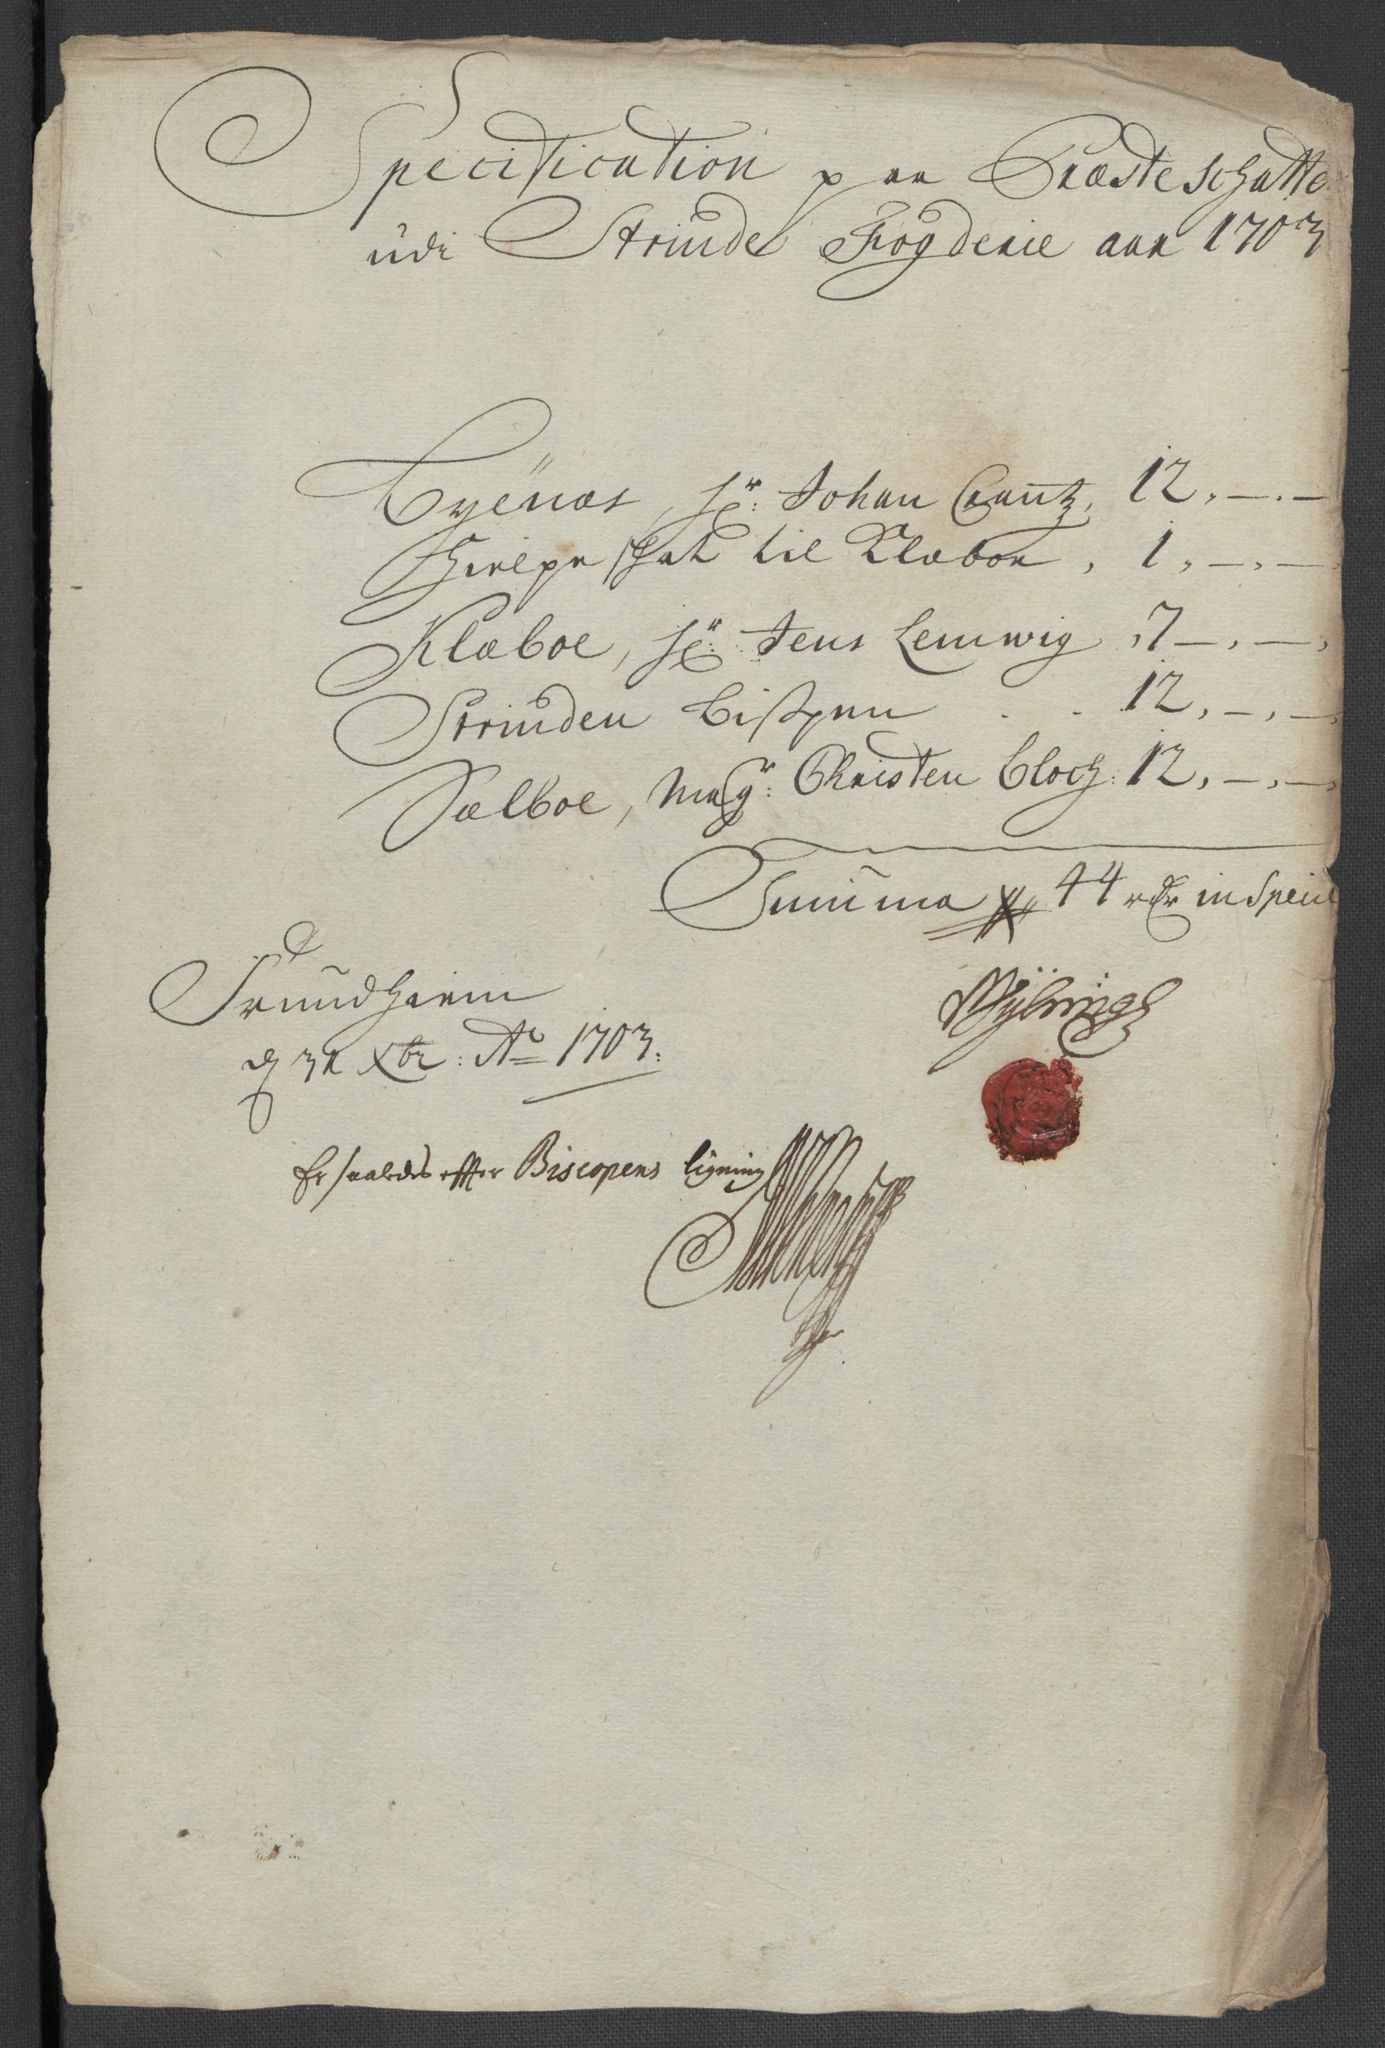 Specification paa Præsteschatten
udi Strinde Fogderie aar 1703
Byenæs, Hr: Johan Crantz, 12, —. —
Hielpe skat til Klæboe, 1, —, —
Klæboe, Hr: Jens Lemwig, 7 —, —,
Strinden Bispen . . 12, —, —,
Sælboe, Magr: Christen Bloch: 12, —, —
Summa 44 rdr in Specie
Trundhiem
d 31 Xbr: Ao 1703:
Er saaledes effter Biscopens ligning